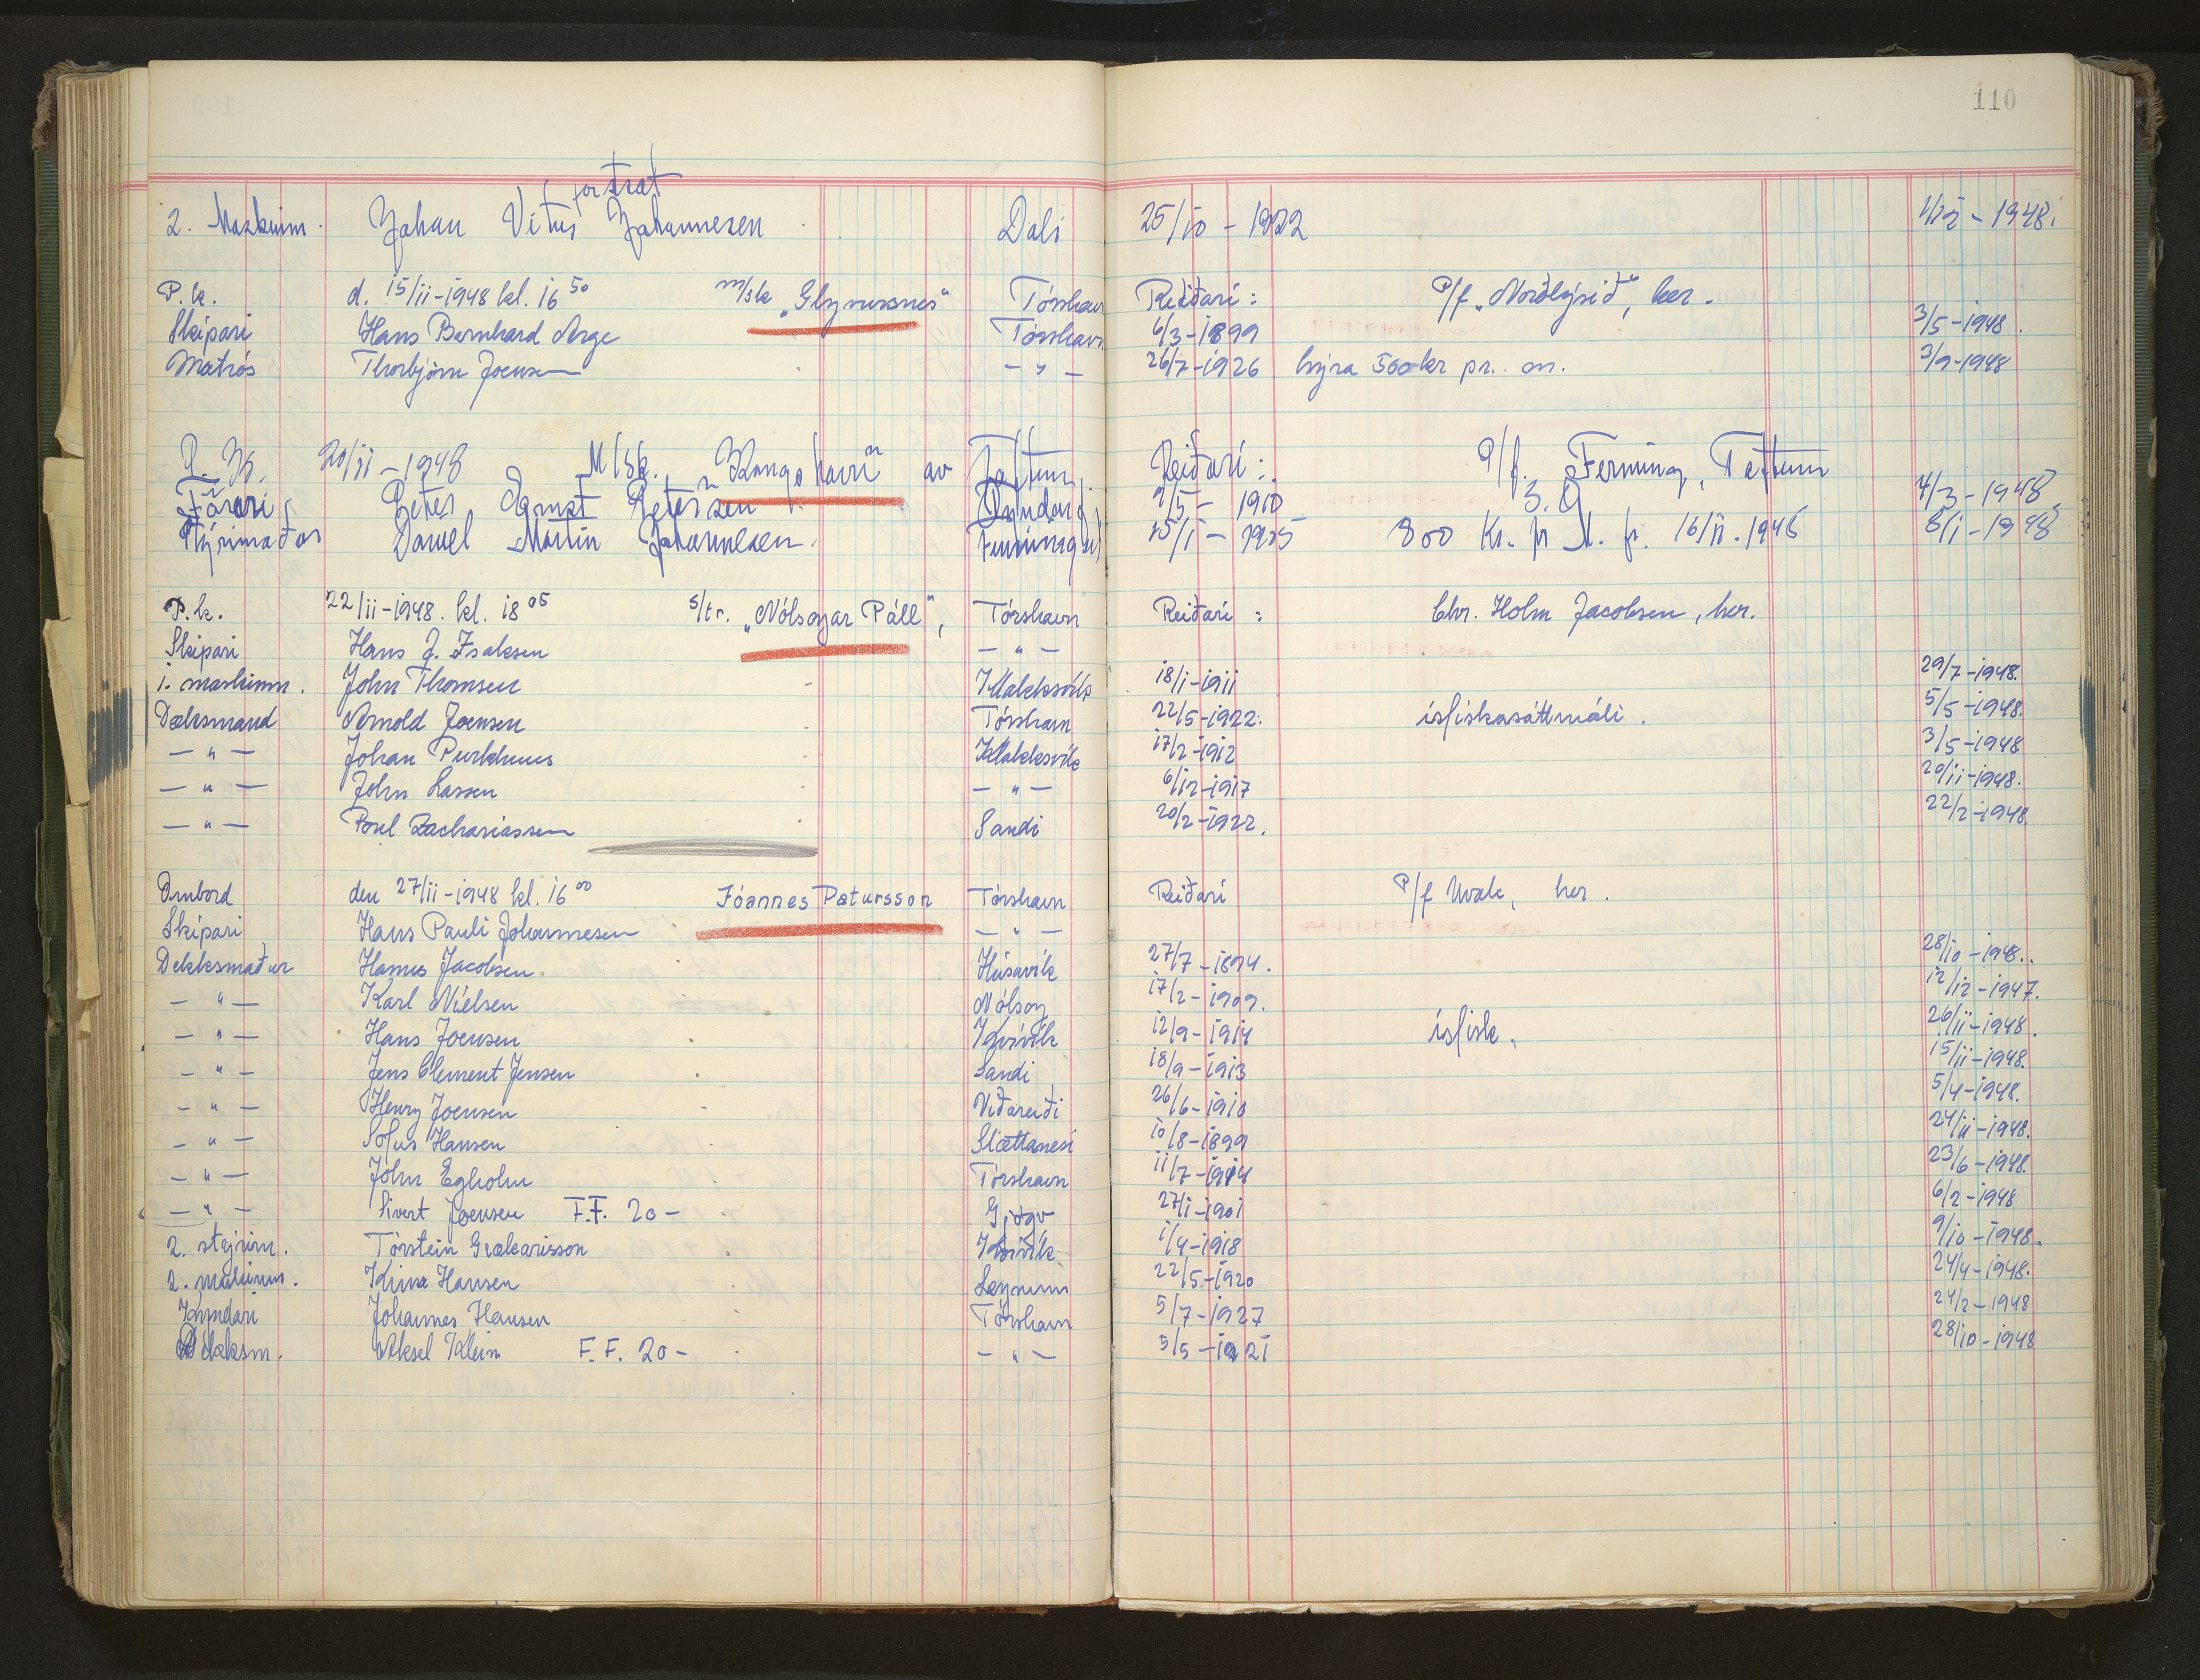 110
fortsat
2. Maskinm. Johan Vitus Johannesen Dali 25/10 - 1922 1/12 - 1948.
P.k. d. 15/11-1948 kl. 16 50 m/sk „Glyvursnes“ Tórshavn Reiðari: P/f „Norðlýsið“, her.
Skipari Hans Bernhard Arge Tórshavn 6/3-1899 3/5-1948.
Matrós Thorbjörn Joensen — " — 26/7-1926 hýra 500 kr pr. m. 3/9-1948
P. K. 20/11-1948 M/Sk. „Kongshavn“ av Toftum, Reiðari: P/f. Ferming, Toftum
Förari Peter Ernst Petersen 2/5 - 1910 3. O 4/3-1948
Stýrimaður Daniel Martin Johannesen. 15/1 - 1925 800 Kr. pr M. fr. 16/11.1946 8/1-1948
P.k. 22/11-1948. kl. 18 05 s/tr. „Nólsoyar Páll“, Tórshavn Reiðari: Chr. Holm Jacobsen, her.
Skipari Hans J. Isaksen — " —
1. maskinm. John Thomsen Klakksvík 18/1-1911 29/7-1948.
Dæksmand Arnold Joensen Tórshavn 22/5-1922. ísfiskasáttmáli. 5/5-1948.
— " — Johan Purkhus Klakksvík 17/2-1912 3/5-1948
— " — John Lassen — " — 6/12-1917 20/11-1948.
— " — Poul Zachariassen Sandi 20/2-1922. 22/2-1948.
Ombord den 27/11-1948 kl. 16 00 Jóannes Patursson Tórshavn Reiðari P/f Hvalv, her.
Skipari Hans Pauli Johannesen — " —
Dekksmaður Hanus Jacobsen Húsavík 27/7-1894. 28/10-1948.
— " — Karl Nielsen Nólsoy 17/2-1909. 12/12-1947.
— " — Hans Joensen Kvívík 12/9-1914 ísfisk. 26/11-1948.
— " — Jens Clement Jensen Sandi 18/9-1913 15/11-1948.
— " — Henry Joensen Viðareiði 26/6-1910 5/4-1948.
— " — Sofus Hansen Slættanesi 10/8-1899 24/11-1948.
— " — John Egholm Tórshavn 11/7-1914 23/6-1948.
— " — Sivert Joensen F.F. 20- Gjógv 27/1-1901 6/2-1948
2. stýrim. Tórstein Grækarisson Kvívík 1/4-1918 9/10-1948.
2. maskinm. Kinna Hansen Leynum 22/5-1920 24/4-1948.
Kyndari Johannes Hansen Tórshavn 5/7-1927 24/2-1948
Dæksm. Aksel Klein F.F. 20- — " — 5/5-1921 28/10-1948